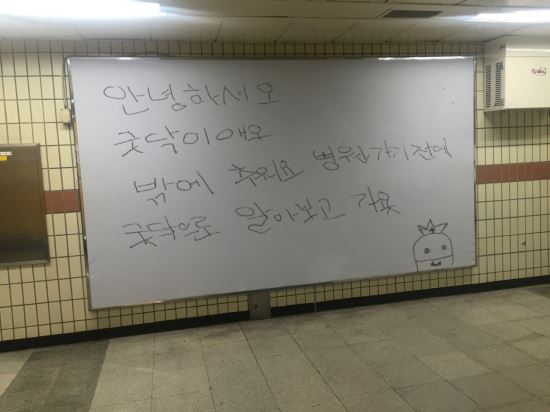 안녕하세오
굿닥이애요
밖에 추워요 병원가기전에
굿닥으로 알아보고 가욧